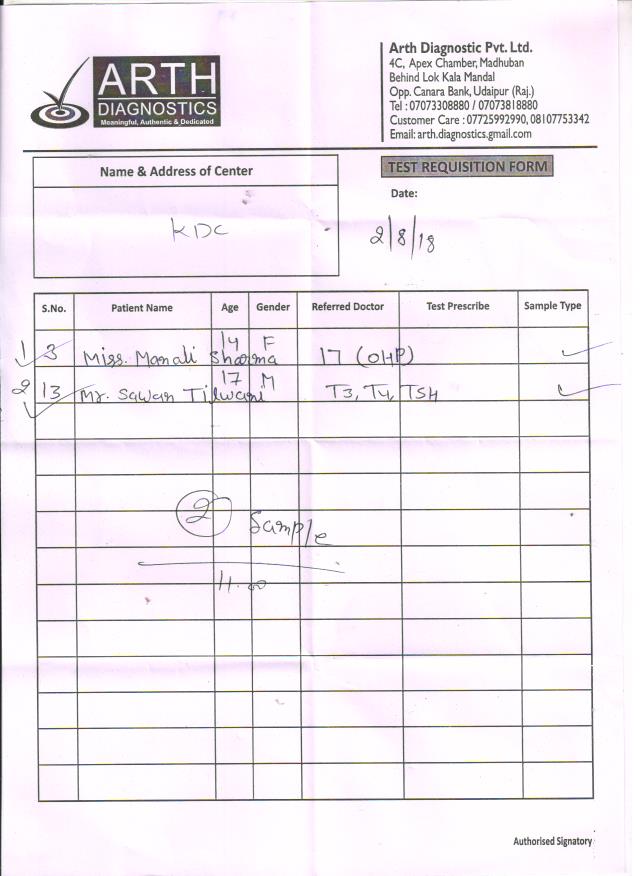 ARTH
DIAGNOSTICS
Meaningful, Authentic & Dedicated
Arth Diagnostic Pvt. Ltd.
4C, Apex Chamber, Madhuban
Behind Lok Kala Mandal
Opp. Canara Bank, Udaipur (Raj.)
Tel : 07073308880 / 07073818880
Customer Care : 07725992990, 08107753342
Email: arth.diagnostics.gmail.com
Name & Address of Center
TEST REQUISITION FORM
KDC
Date:
2/8/18
S.No. Patient Name Age Gender Referred Doctor Test Prescribe Sample Type
1 3 Miss. Manali Sharma 14 F 17 (OHP)
2 13 Mr. Sawan Tilwani 17 M T3, T4, TSH
2 Sample
11.00
Authorised Signatory